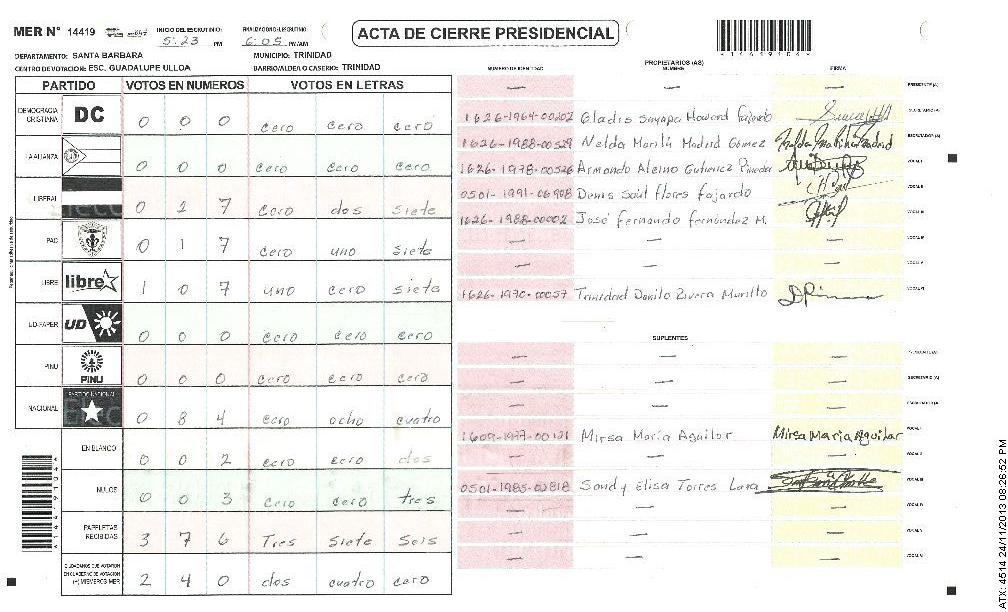 MER N° 14419
INICIO DEL ESCRUTINIO: 5:23 PM
FINALIZACION ESCRUTINIO: 6:05 PM/AM
ACTA DE CIERRE PRESIDENCIAL
DEPARTAMENTO: SANTA BARBARA
MUNICIPIO: TRINIDAD
CENTRO DE VOTACION: ESC. GUADALUPE ULLOA
BARRIO/ALDEA O CASERIO: TRINIDAD
PARTIDO VOTOS EN NUMEROS VOTOS EN LETRAS
DEMOCRACIA CRISTIANA DC 0 0 0 cero cero cero
LA ALIANZA 0 0 0 cero cero cero
LIBERAL 0 2 7 cero dos siete
PAC 0 1 7 cero uno siete
LIBRE libre 1 0 7 uno cero siete
UD-FAPER UD 0 0 0 cero cero cero
PINU PINU 0 0 0 cero cero cero
NACIONAL 0 8 4 cero ocho cuatro
EN BLANCO 0 0 2 cero cero dos
NULOS 0 0 3 cero cero tres
PAPELETAS RECIBIDAS 3 7 6 Tres Siete Seis
CIUDADANOS QUE VOTARON EN CUADERNO DE VOTACION (+) MIEMBROS MER 2 4 0 dos cuatro cero
PROPIETARIOS (AS)
NUMERO DE IDENTIDAD NOMBRE FIRMA
PRESIDENTE (A)
1626-1964-00202 Gladis Howard fajardo SECRETARIO (A)
1626-1988-00529 Nelda Marilú Madrid Gómez ESCRUTADOR (A)
1626-1978-00526 Armando Gutierrez Pineda VOCAL I
0501-1991-06908 Denis Saúl flores fajardo VOCAL II
1626-1988-00002 José fernando fernández M. VOCAL III
VOCAL IV
VOCAL V
1626-1970-00057 Trinidad Danilo Rivera Murillo VOCAL VI
SUPLENTES
PRESIDENTE (A)
SECRETARIO (A)
ESCRUTADOR (A)
1609-1977-00121 Mirsa María Aguilar Mirsa Maria Aguilar VOCAL I
VOCAL II
0501-1985-02818 Sandy Elisa Torres Lara VOCAL III
VOCAL IV
VOCAL V
VOCAL VI
ATX: 4514 24/11/2013 08:26:52 PM